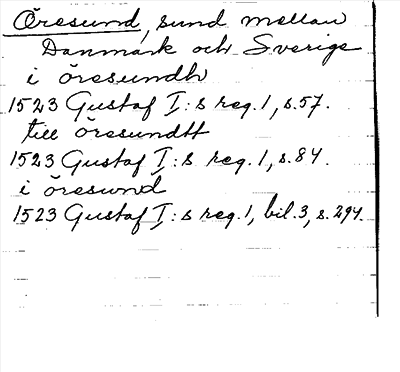 Öresund, sund mellan
Danmark och Sverige
i öresundh
1523 Gustaf I:s reg. 1, s. 57.
till öresundtt
1523 Gustaf I:s reg. 1, s. 84.
i öresund
1523 Gustaf I:s reg. 1, bil. 3, s. 294.